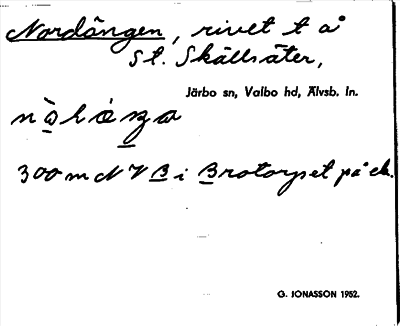 Nordängen, rivet t å
St. Skällsäter,
Järbo sn, Valbo hd, Älvsb. ln.
300 m N V B i Brotorpet på ek.
G. JONASSON 1952.